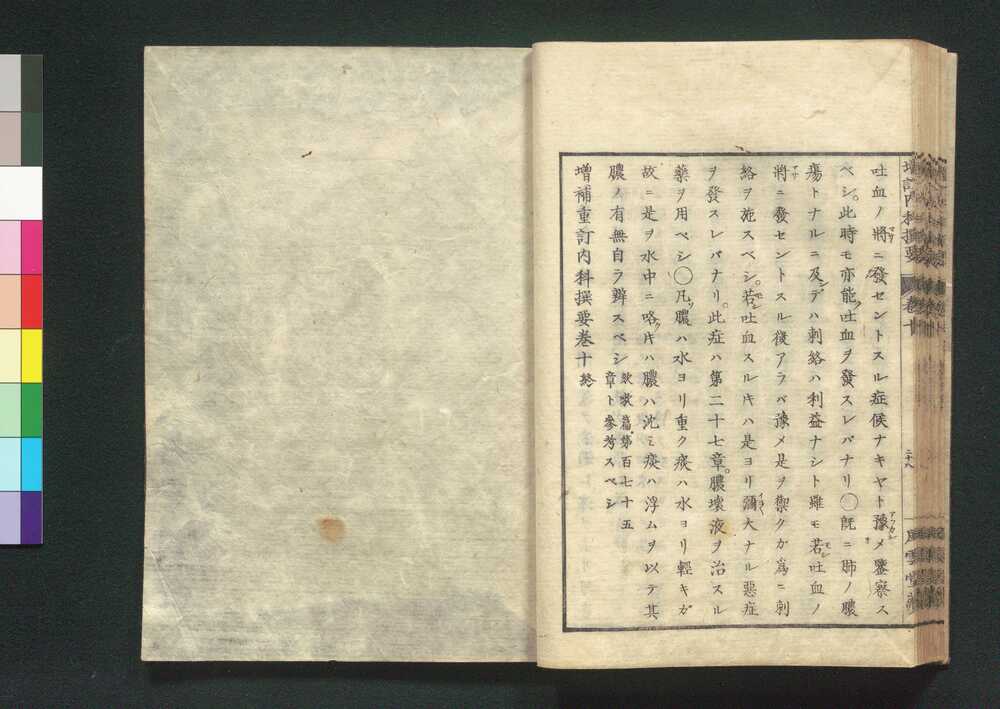 吐血ノ將ニ發セントスル症候ナキヤト豫メ鑒察ス
ベシ。此時モ亦能吐血ヲ發スレバナリ〇既ニ肺ノ膿
瘍トナルニ及デハ刺絡ハ利益ナシト雖モ若吐血ノ
將ニ發セントスル徴アラバ豫メ是ヲ禦クガ爲ニ刺
絡ヲ施スベシ。若吐血スル片ハ是ヨリ彌大ナル惡症
ヲ發スレバナリ。此症ハ第二十七章。膿壞液ヲ治スル
藥ヲ用ベシ〇凡膿ハ水ヨリ重ク痰ハ水ヨリ輕キガ
故ニ是ヲ水中ニ咯片ハ膿ハ沈ミ痰ハ浮ムヲ以テ其
膿ノ有無自ラ辨スベシ
欬嗽篇第百七十五
章ト參考スベシ
增補重訂內科撰要卷十終